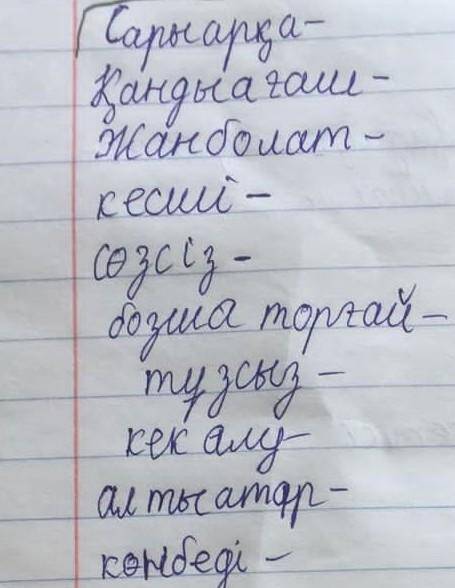 Сарыарқа-
Қандыағаш-
Жанболат-
кесші-
сөзсіз-
бозша торғай-
тұзсыз-
кек алу-
алтыатар-
көнбеді-